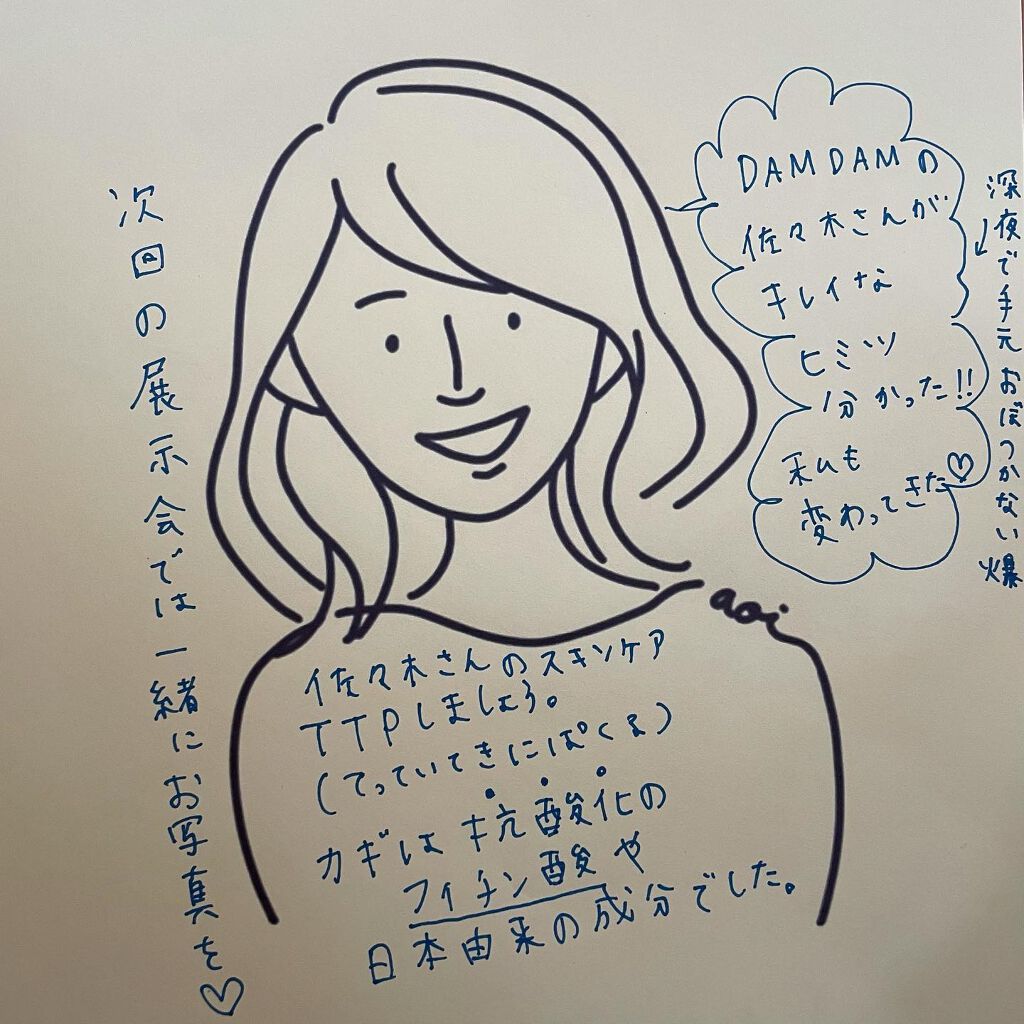 DAMDAMの
佐々木さんが
キレイな
ヒミツ
分かった!!
私も
変わってきた♡
深夜で手元おぼつかない爆
↓
次回の展示会では一緒にお写真を♡
aoi
佐々木さんのスキンケア
TTPしましょう。
(てっていてきにぱくる)
カギは抗酸化の
フィチン酸や
日本由来の成分でした。